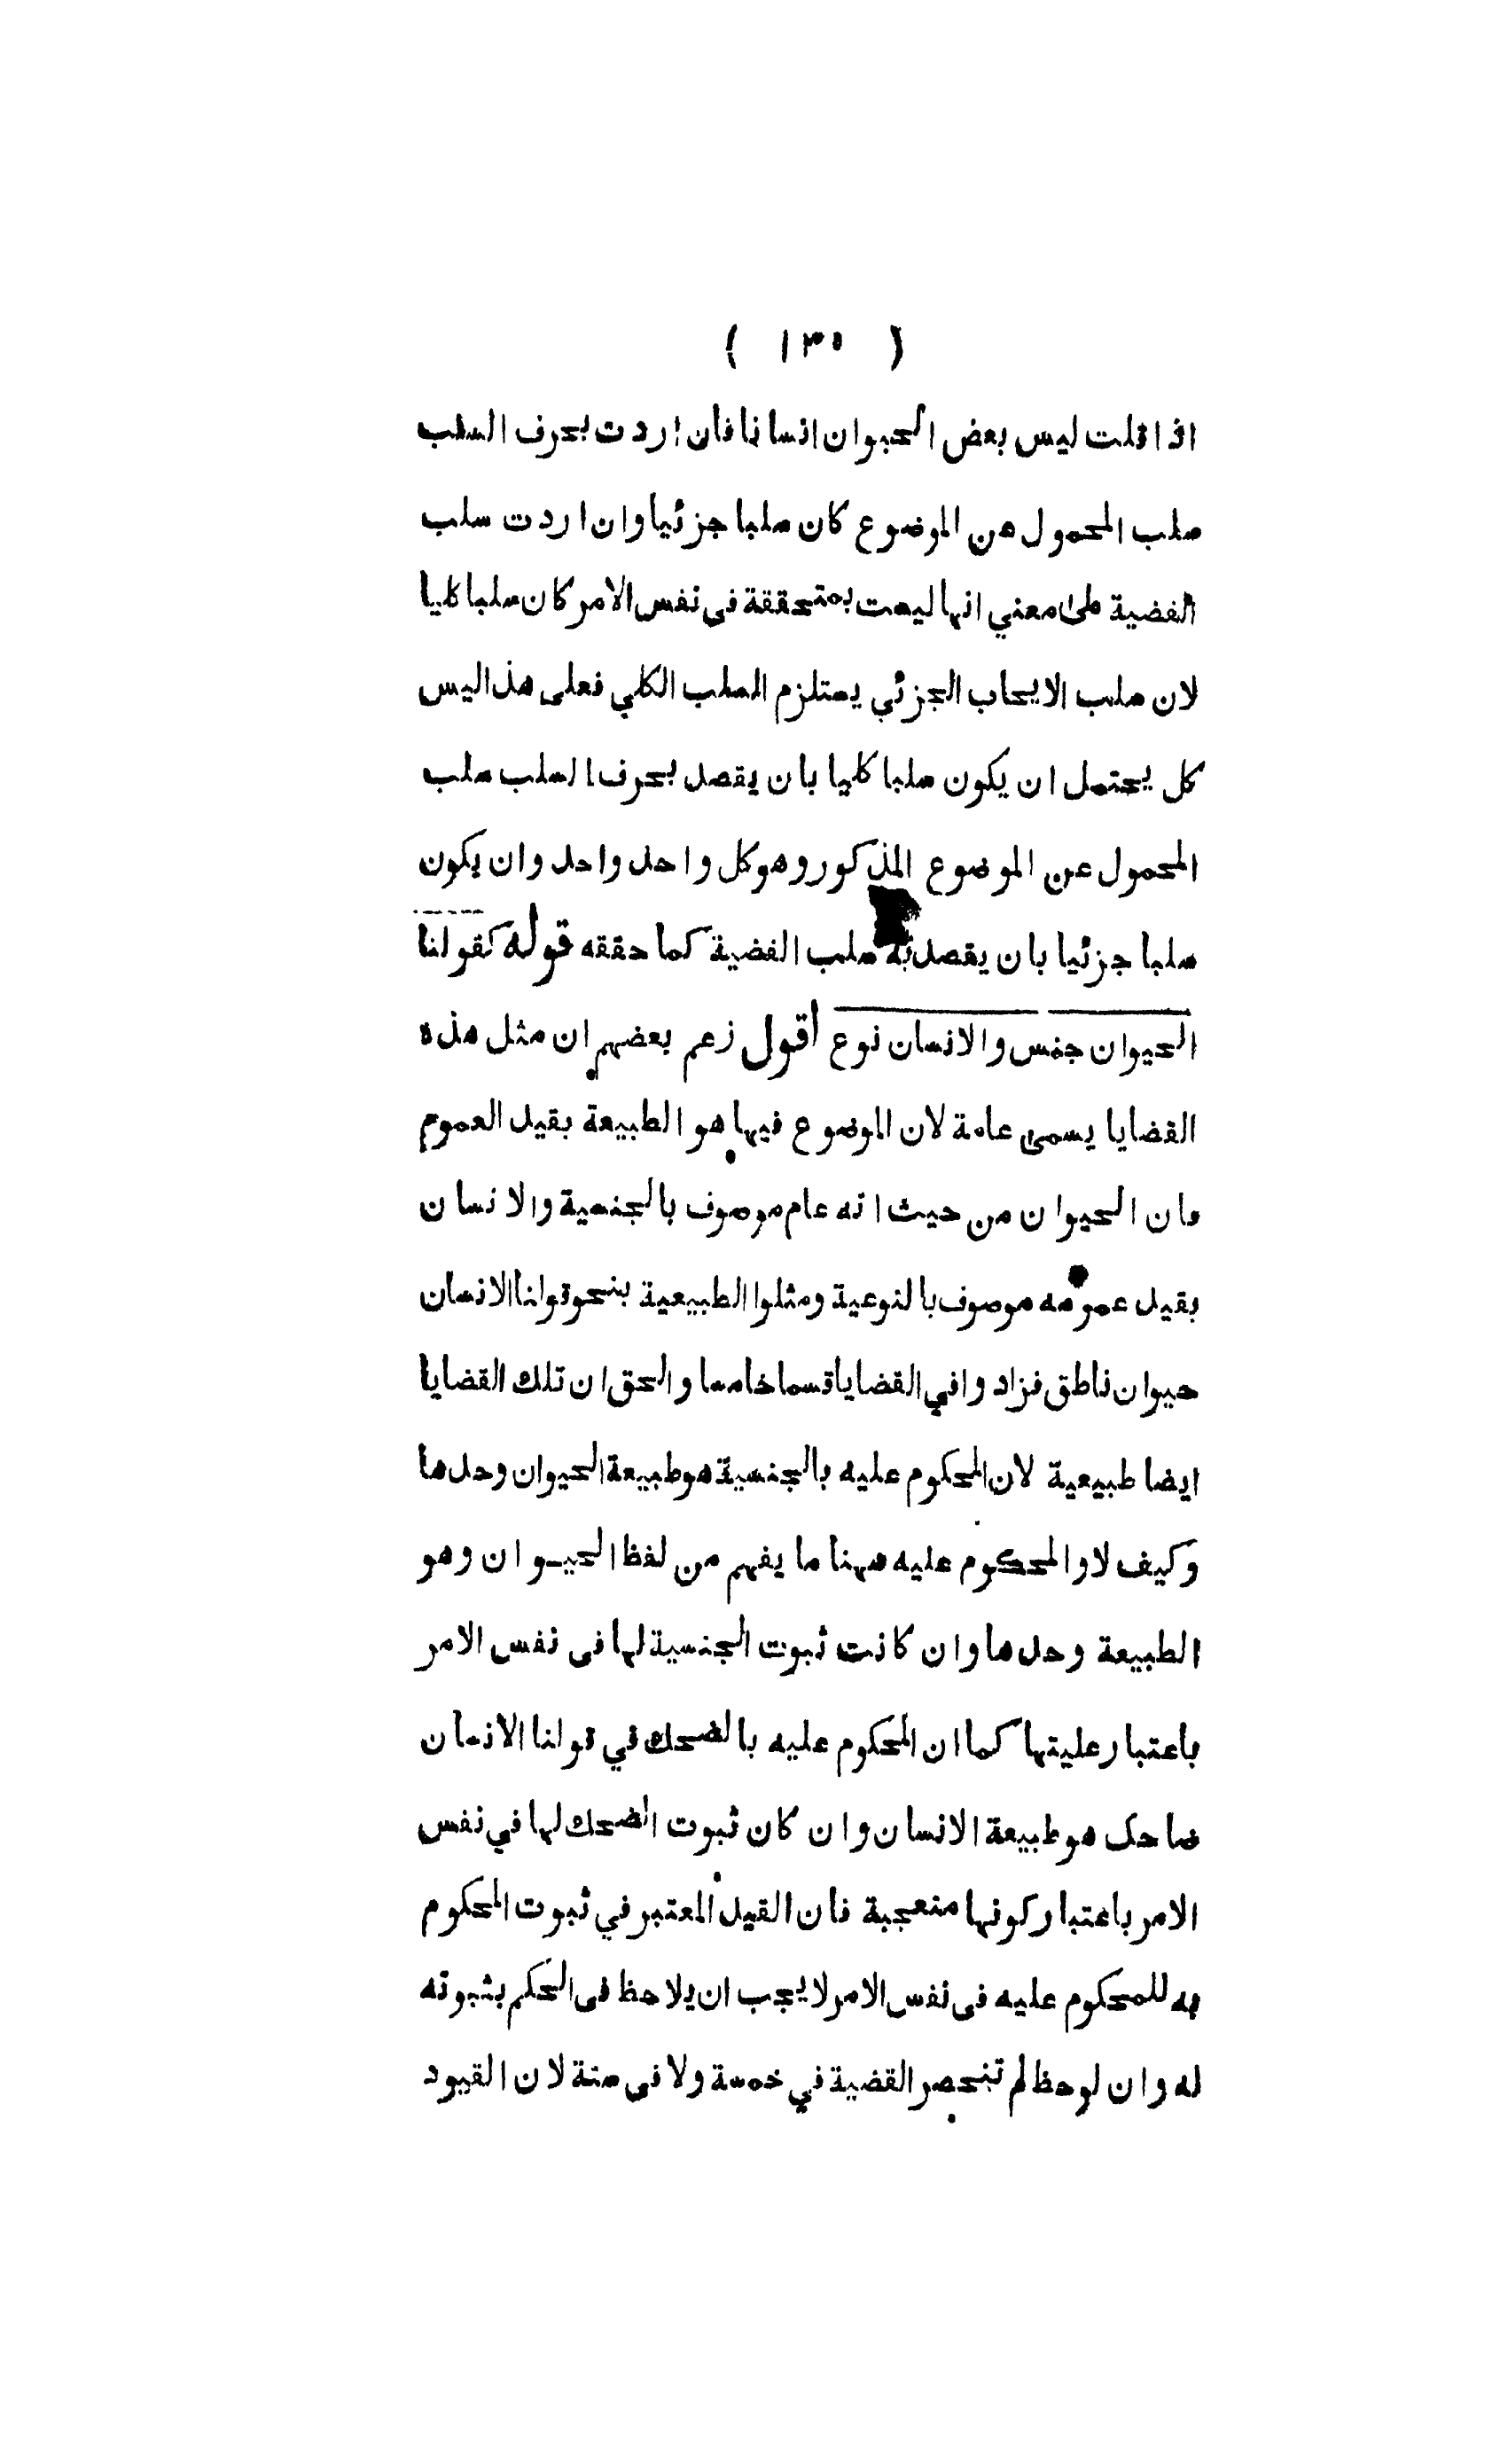 ( ١٣٥ )
اذا قلت ليس بعض الحيوان انسانا فان اردت بحرف السلب
سلب المحمول عن الموضوع كان سلبا جزئيا وان اردت سلب
القضية على معني انها ليست بمتحققة فى نفس الامر كان سلبا كليا
لان سلب الايجاب الجزئي يستلزم السلب الكلي فعلى هذا ليس
كل يحتمل ان يكون سلبا كليا بان يقصد بحرف السلب سلب
المحمول عن الموضوع المذكور وهو كل واحد واحد وان يكون
سلبا جزئيا بان يقصد به سلب القضية كما حققه قوله كقولنا
الحيوان جنس والانسان نوع أقول زعم بعضهم ان مثل هذه
القضايا يسمى عامة لان الموضوع فيها هو الطبيعة بقيد العموم
فان الحيوان من حيث انه عام موصوف بالجنسية والانسان
بقيد عمومه موصوف بالنوعية ومثلوا الطبيعية بنحو قولنا الانسان
حيوان ناطق فزادوا في القضايا قسما خامسا والحق ان تلك القضايا
ايضا طبيعية لان المحكوم عليه بالجنسية هو طبيعة الحيوان وحدها
وكيف لا والمحكوم عليه ههنا ما يفهم من لفظ الحيوان وهو
الطبيعة وحدها وان كانت ثبوت الجنسية لها فى نفس الامر
باعتبار عليتها كما ان المحكوم عليه بالضحك في قولنا الانسان
ضاحك هو طبيعة الانسان وان كان ثبوت الضحك لها في نفس
الامر باعتبار كونها متعجبة فان القيد المعتبر في ثبوت المحكوم
به للمحكوم عليه فى نفس الامر لا يجب ان يلاحظ فى الحكم بثبوته
له وان لوحظ لم تنحصر القضية في خمسة ولا فى ستة لان القيود